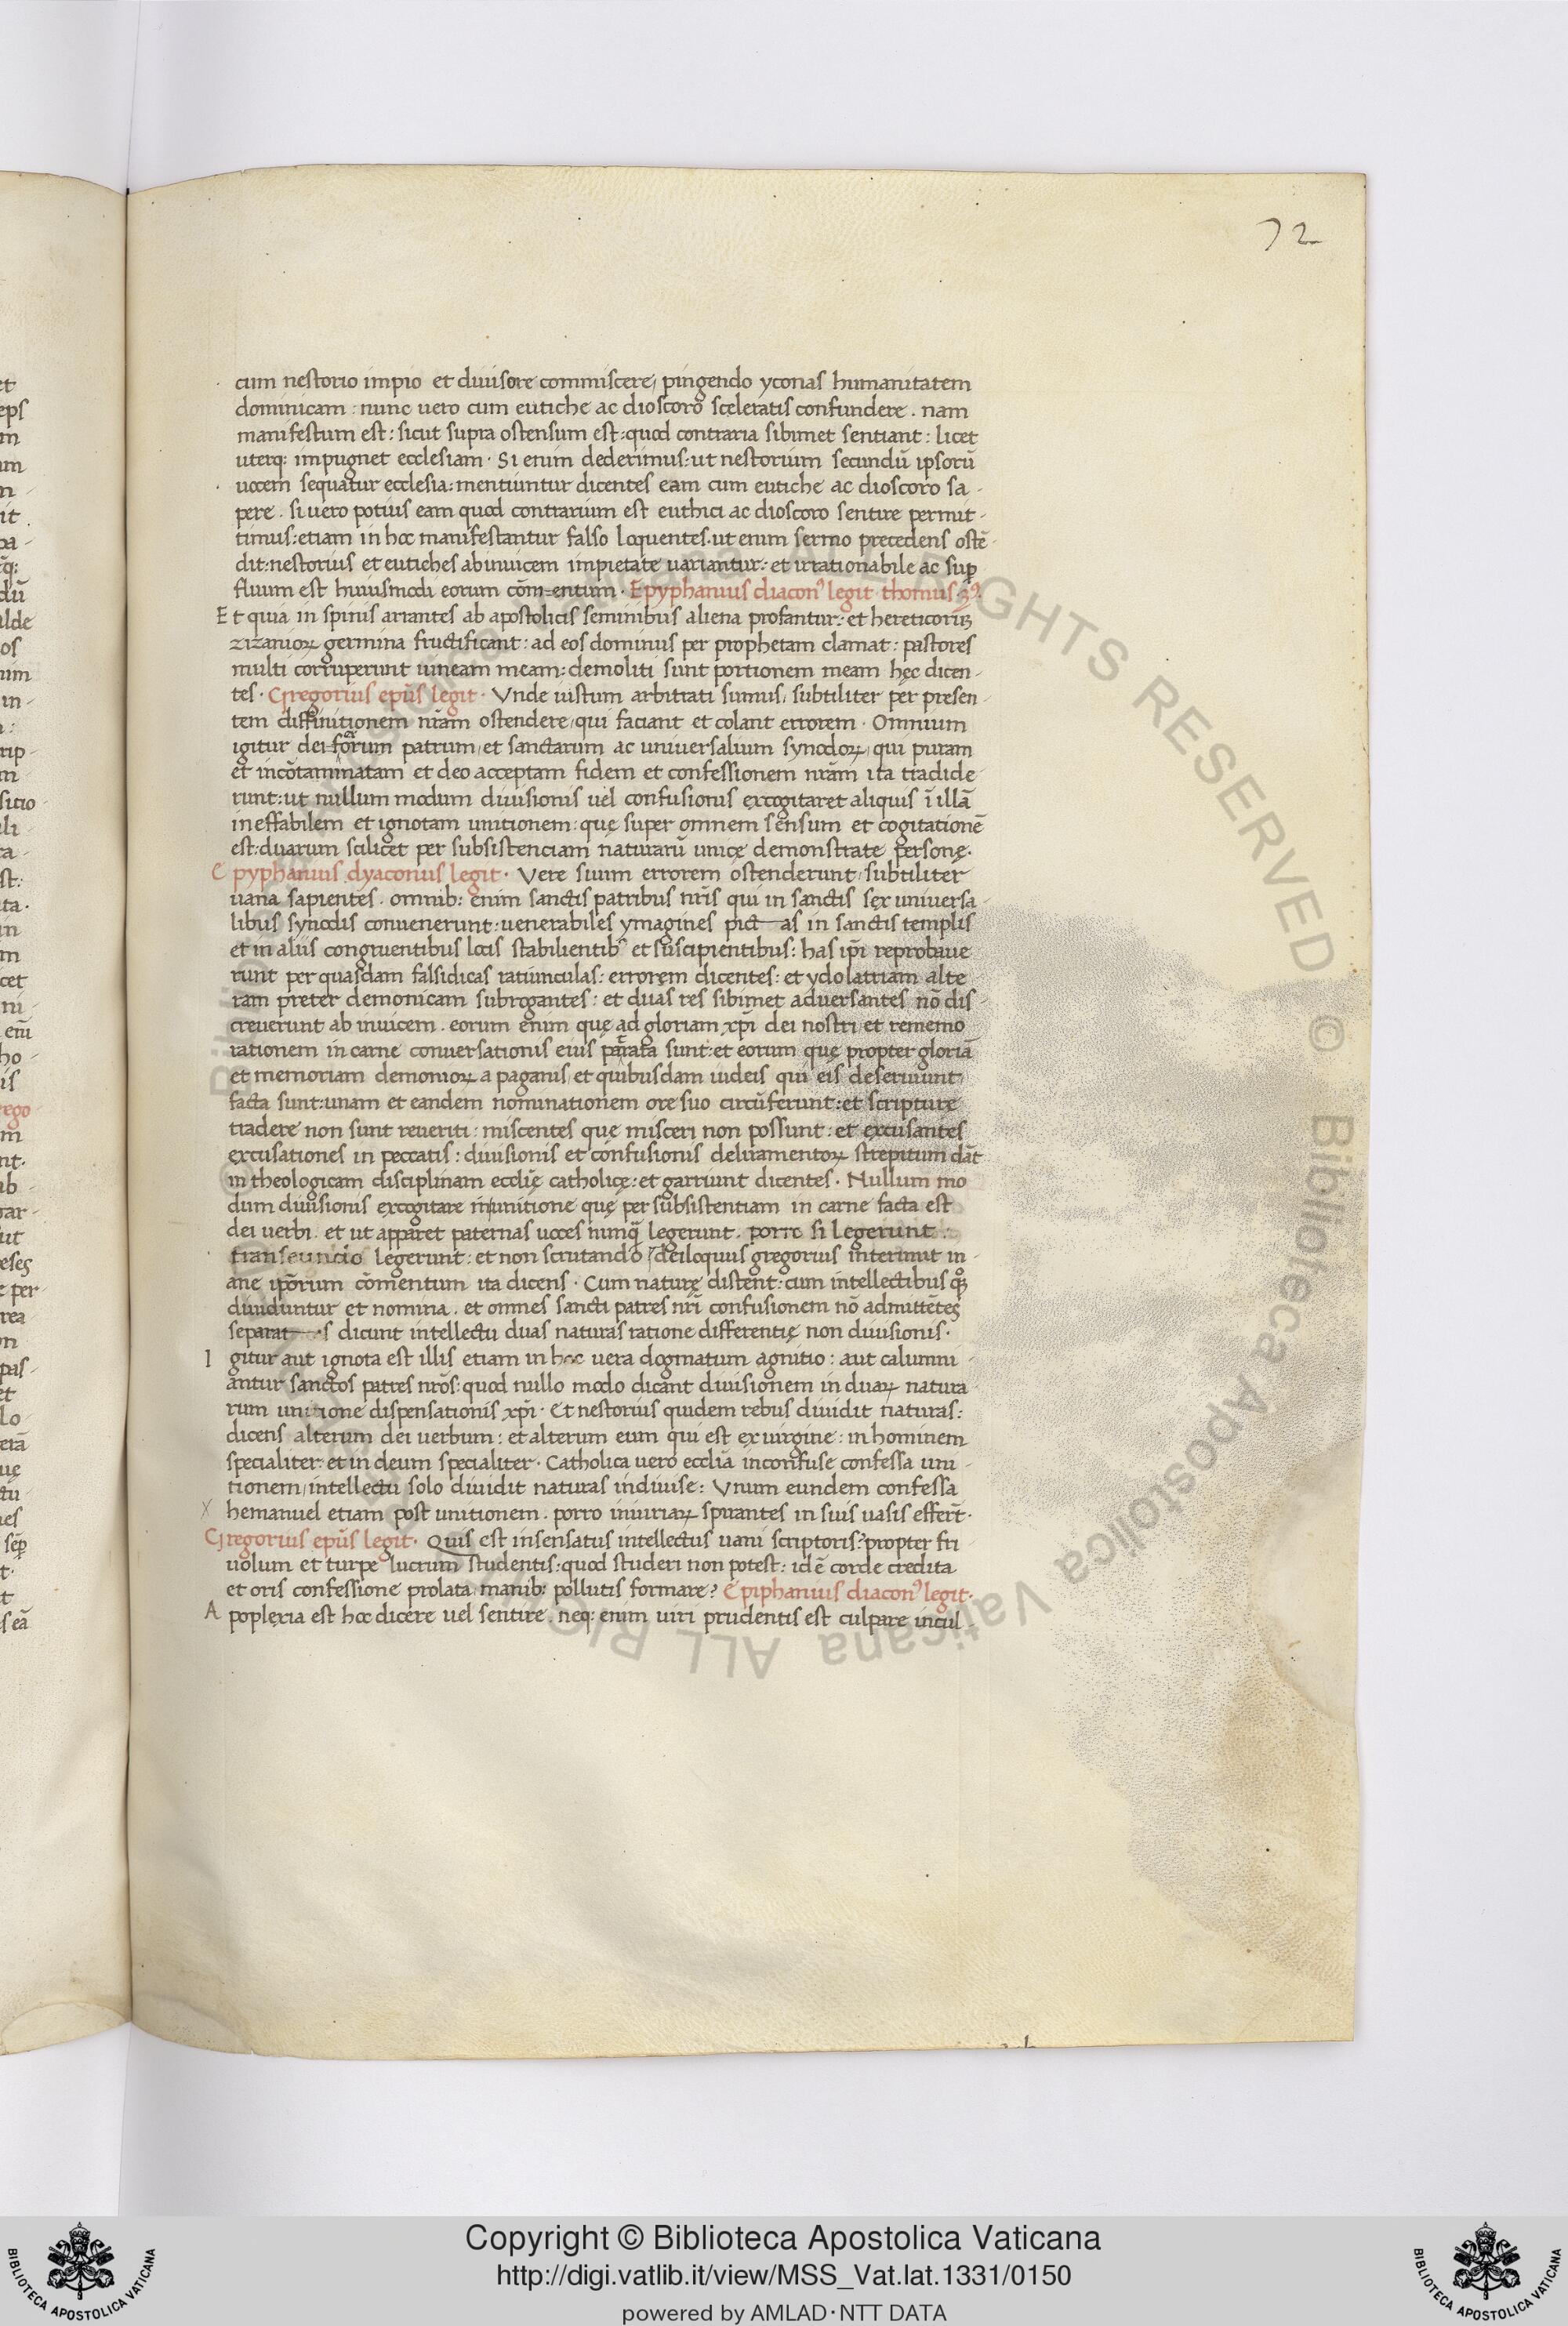 72
cum nestorio impio et diuisore commiscere, pingendo yconas humanitatem
dominicam : nunc uero cum eutiche ac dioscoro sceleratis confundere . nam
manifestum est : sicut supra ostensum est : quod contraria sibimet sentiant : licet
uterq: impugnet ecclesiam · Si enim dederimus : ut nestorium secundū ipsorū
uocem sequatur ecclesia : mentiuntur dicentes eam cum eutiche ac dioscoro sa-
pere . si uero potius eam quod contrarium est euthici ac dioscoro sentire permit-
timus : etiam in hoc manifestantur falso loquentes . ut enim sermo precedens ostē-
dit : nestorius et eutiches abinuicem impietate uariantur : et irrationabile ac sup
fluum est huiusmodi eorum cōm=entum · Epyphanius diacon⁹ legit thomus
Et quia in spinis ariantes ab apostolicis seminibus aliena profantur : et hereticorū
zizanioꝝ germina fructificant : ad eos dominus per prophetam clamat : pastores
multi corruperunt uineam meam : demoliti sunt portionem meam hęc dicen-
tes · Gregorius ep̄s legit · Vnde iustum arbitrati sumus, subtiliter per presen-
tem diffinitionem nr̄am ostendere, qui faciant et colant errorem · Omnium
igitur deiforum patrum, et sanctarum ac uniuersalium synodoꝝ, qui puram
et incōtaminatam et deo acceptam fidem et confessionem nr̄am ita tradide-
runt : ut nullum modum diuisionis uel confusionis excogitaret aliquis ī illā
ineffabilem et ignotam unitionem : quę super omnem sensum et cogitationē
est : duarum scilicet per subsistenciam naturarū unicę demonstrate personę ·
Epyphanius dyaconus legit · Vere suum errorem ostenderunt, subtiliter
uana sapientes . omnib: enim sanctis patribus nr̄is qui in sanctis sex uniuersa-
libus synodis conuenerunt : uenerabiles ymagines pict—as in sanctis templis
et in aliis congruentibus locis stabilientib⁹ et suscipientibus : has ip̄i reprobaue
runt per quasdam falsidicas ratiunculas : errorem dicentes : et ydolatriam alte
ram preter demonicam subrogantes : et duas res sibimet aduersantes nō dis-
creuerunt ab inuicem . eorum enim quę ad gloriam xp̄i dei nostri et rememo
rationem in carne conuersationis eius parata sunt : et eorum quę propter gloriā
et memoriam demonioꝝ a paganis, et quibusdam iudeis qui eis deseruiunt
facta sunt : unam et eandem nominationem ore suo circūferunt : et scripturę
tradere non sunt reueriti : miscentes que misceri non possunt : et excusantes
excusationes in peccatis : diuisionis et confusionis deliramentoꝝ strepitum dāt
in theologicam disciplinam eccl̄ię catholicę : et garriunt dicentes · Nullum mo
dum diuisionis excogitare in unitione quę per subsistentiam in carne facta est
dei uerbi . et ut apparet paternas uoces nunq̄ legerunt . porro si legerunt :
transeundo legerunt : et non scrutando / deiloquus gregorius interimit in-
ane ip̄orum cōmentum ita dicens · Cum naturę distent : cum intellectibus
diuiduntur et nomina . et omnes sancti patres nr̄i confusionem nō admittētes
separat—s dicunt intellectu duas naturas ratione differentię non diuisionis ·
Igitur aut ignota est illis etiam in hoc uera dogmatum agnitio : aut calumni-
antur sanctos patres nr̄os : quod nullo modo dicant diuisionem in duaꝝ natura
rum unitione dispensationis xp̄i · Et nestorius quidem rebus diuidit naturas :
dicens alterum dei uerbum : et alterum eum qui est ex uirgine : in hominem
specialiter : et in deum specialiter · Catholica uero eccl̄ia inconfuse confessa uni-
tionem, intellectu solo diuidit naturas indiuise : Vnum eundem confessa
hemanuel etiam post unitionem . porro iniuriaꝝ spirantes in suis uasis effert̄ ·
Gregorius ep̄s legit · Quis est insensatus intellectus uani scriptoris : propter fri
uolum et turpe lucrum studentis : quod studeri non potest : id ē corde credita
et oris confessione prolata manib: pollutis formare ? Epiphanius diacon⁹ legit ·
Apoplexia est hoc dicere uel sentire . neq: enim uiri prudentis est culpare incul-
© Biblioteca Apostolica Vaticana ALL RIGHTS RESERVED
Copyright © Biblioteca Apostolica Vaticana
http://digi.vatlib.it/view/MSS_Vat.lat.1331/0150
powered by AMLAD·NTT DATA
BIBLIOTECA APOSTOLICA VATICANA
BIBLIOTECA APOSTOLICA VATICANA